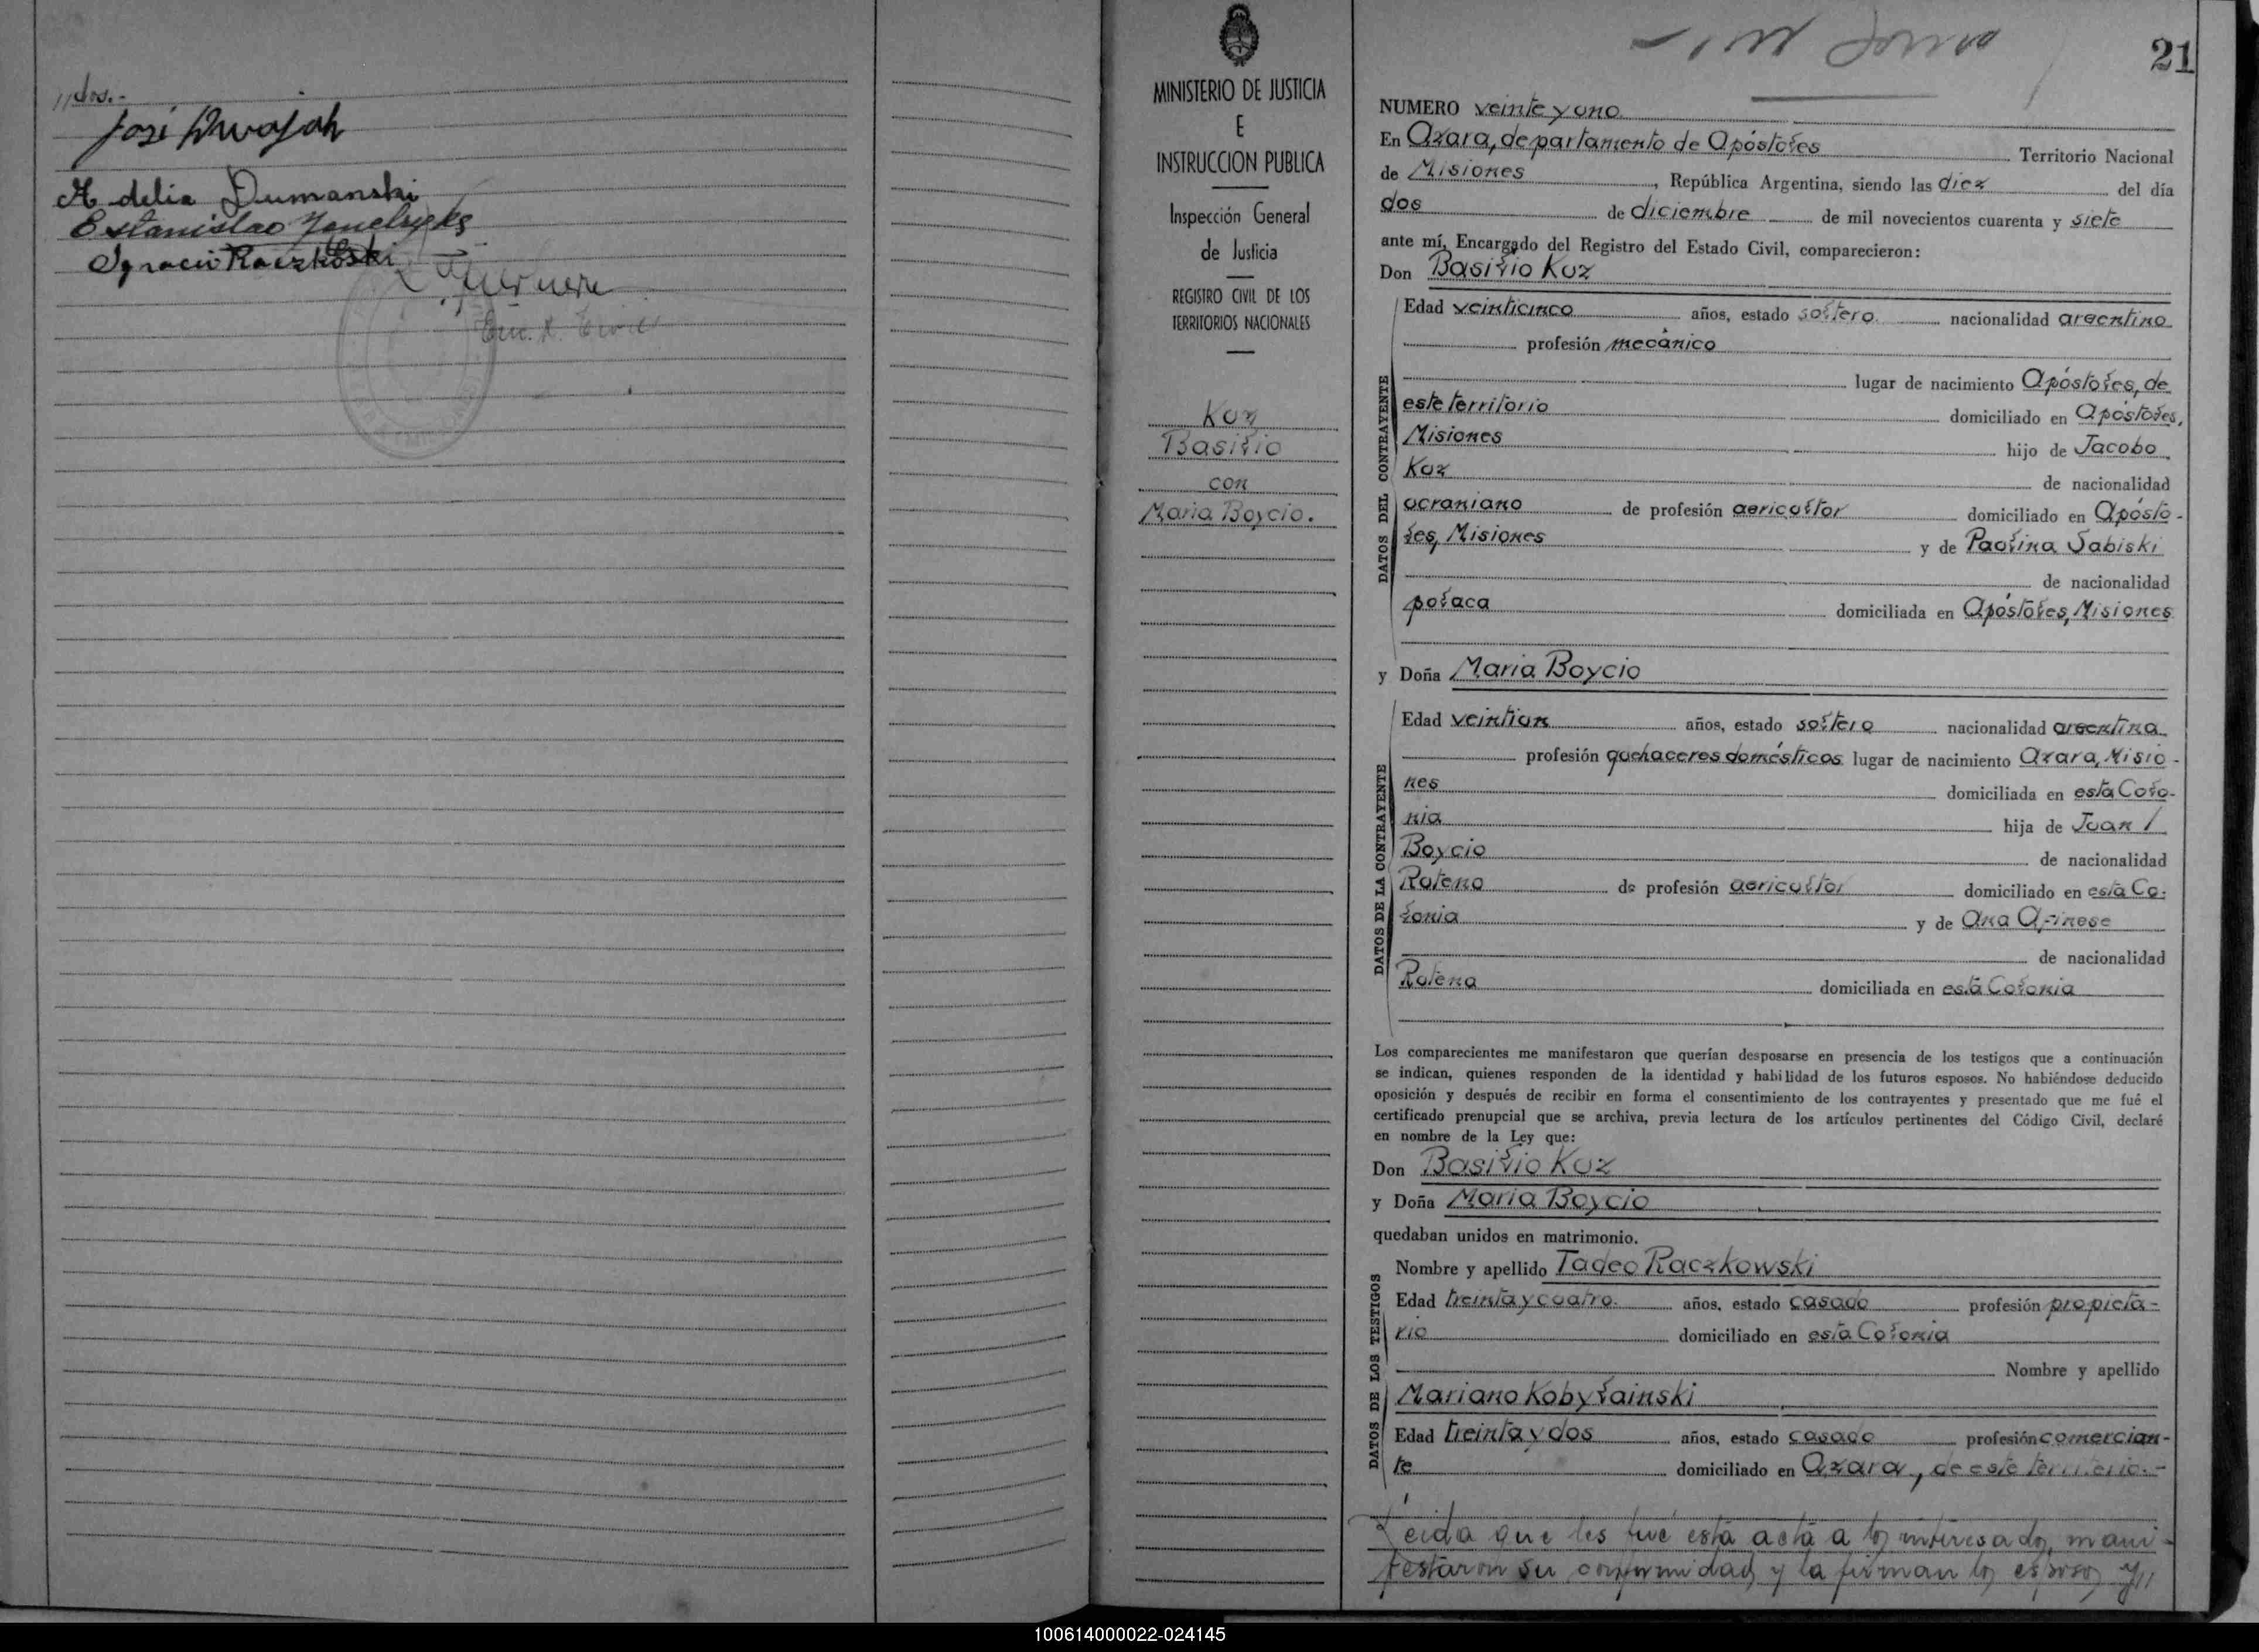 José
Adelia Dumanski
Estanislao
Ignacio Raczkoski
Enc. R. Civil
MINISTERIO DE JUSTICIA
E
INSTRUCCION PUBLICA
Inspección General
de Justicia
REGISTRO CIVIL DE LOS
TERRITORIOS NACIONALES
Kuz
Basilio
con
Maria Boycio.
21
NUMERO veinte y uno
En Azara, departamento de Apóstoles Territorio Nacional
de Misiones, República Argentina, siendo las diez del día
dos de diciembre de mil novecientos cuarenta y siete
ante mí, Encargado del Registro del Estado Civil, comparecieron:
Don Basilio Kuz
DATOS DEL CONTRAYENTE
Edad veinticinco años, estado soltero nacionalidad argentino
profesión mecánico
lugar de nacimiento Apóstoles, de
este territorio domiciliado en Apóstoles,
Misiones hijo de Jacobo
Kuz de nacionalidad
ucraniano de profesión agricultor domiciliado en Aposto-
les, Misiones y de Paulina Sabiski
de nacionalidad
polaca domiciliada en Apóstoles, Misiones
y Doña Maria Boycio
DATOS DE LA CONTRAYENTE
Edad veintiun años, estado soltera nacionalidad argentina
profesión quehaceres domésticos lugar de nacimiento Azara, Misio-
nes domiciliada en esta Colo-
nia hija de Juan
Boycio de nacionalidad
Ruteno de profesión agricultor domiciliado en esta Co-
lonia y de Ana
de nacionalidad
Rutena domiciliada en esta Colonia
Los comparecientes me manifestaron que querían desposarse en presencia de los testigos que a continuación
se indican, quienes responden de la identidad y habilidad de los futuros esposos. No habiéndose deducido
oposición y después de recibir en forma el consentimiento de los contrayentes y presentado que me fué el
certificado prenupcial que se archiva, previa lectura de los artículos pertinentes del Código Civil, declaré
en nombre de la Ley que:
Don Basilio Kuz
y Doña Maria Boycio
quedaban unidos en matrimonio.
DATOS DE LOS TESTIGOS
Nombre y apellido Tadeo Raczkowski
Edad treinta y cuatro años, estado casado profesión propieta-
rio domiciliado en esta Colonia
Nombre y apellido
Mariano Kobylainski
Edad treinta y dos años, estado casado profesión comercian-
te domiciliado en Azara, de este territorio.-
Leida que les fué esta acta a los interesados, mani-
festaron su conformidad y la firman los esposos y//
100614000022-024145